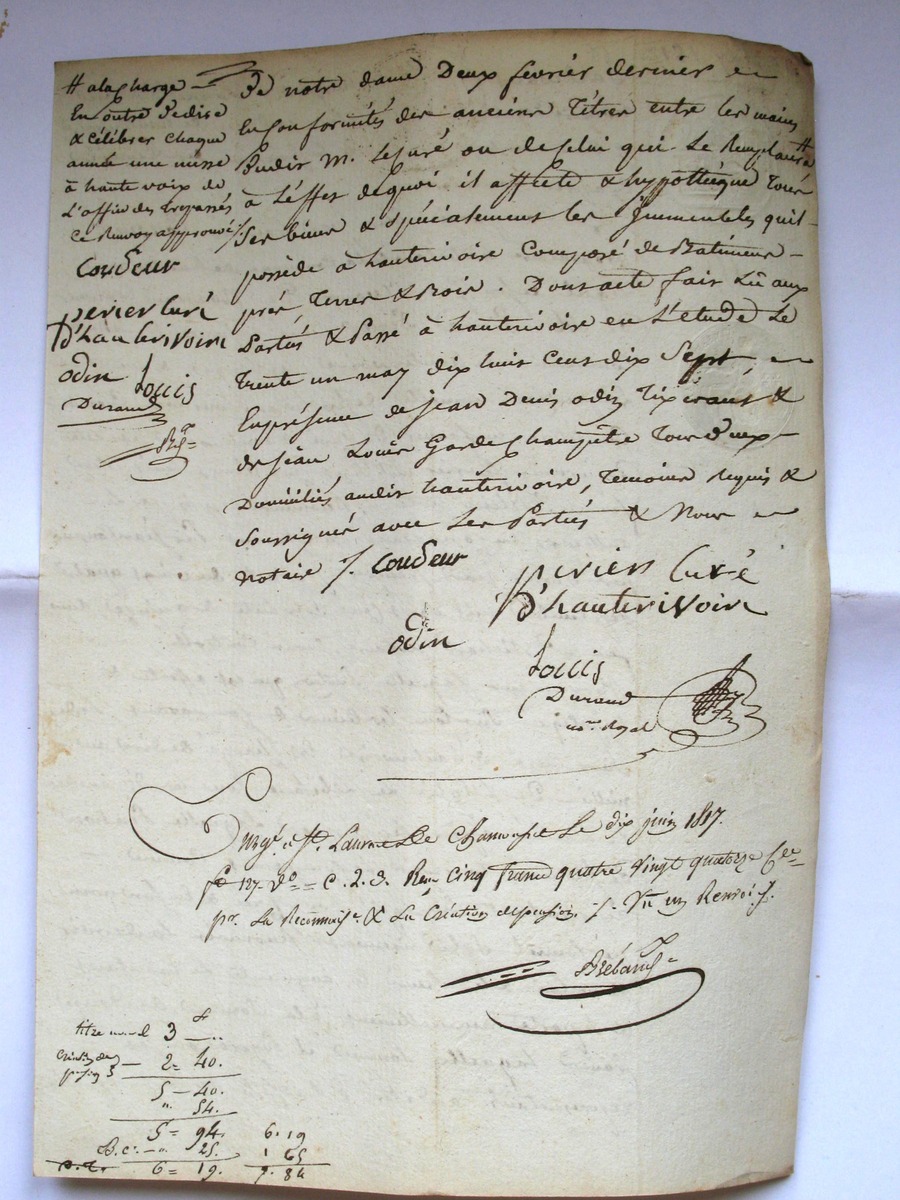 # ala charge
En outre de dire
& célébrer chaque
année une messe
à haute voix de
L'office des trepassés
Ce Renvoy approuvé /.
Coudeur
perier Curé
D'hauterivoire
Odin Louis
Durand
De notre dame Deux février dernier en
Conformités des anciens Titres entre les mains
Dudit M. le Curé ou de Celui qui le Remplacera #
à L'effet de quoi il affecte & hypothèque Tous
Ses biens & spécialement les Immeubles quil
possède à hauterivoire Composé de Batimens
prés, Terres & Bois. Dont acte fait Lû aux
Partis & Passé à hauterivoire en L'étude Le
Trente un may dix huit Cent dix Sept, en
En présence de Jean Denis odin Tixerant &
de Jean Louis Garde Champêtre Tous deux
Domiciliés audit hauterivoire, Temoins Requis &
Soussignés avec Les Partiés & Nous
Notaire /. Coudeur
perier Curé
D'hauterivoire
Odin
Louis
Durand
nore Royal
Enrgé. à St. Laurent De Chamousset Le dix juin 1817.
fo 127. Vo = C. 2. Reçu Cinq francs quatre Vingt quatorze Cmes
pr. La Reconnaisce & La Création de pension /. Vu un Renvoi /.
Brebant
titre nouvel 3 — ..
Création de
pension 3 — 2 = 40.
5 — 40.
" 54.
5 = 94.
B. c. — " 25.
6 = 19.
6. 19
1 65
7. 84